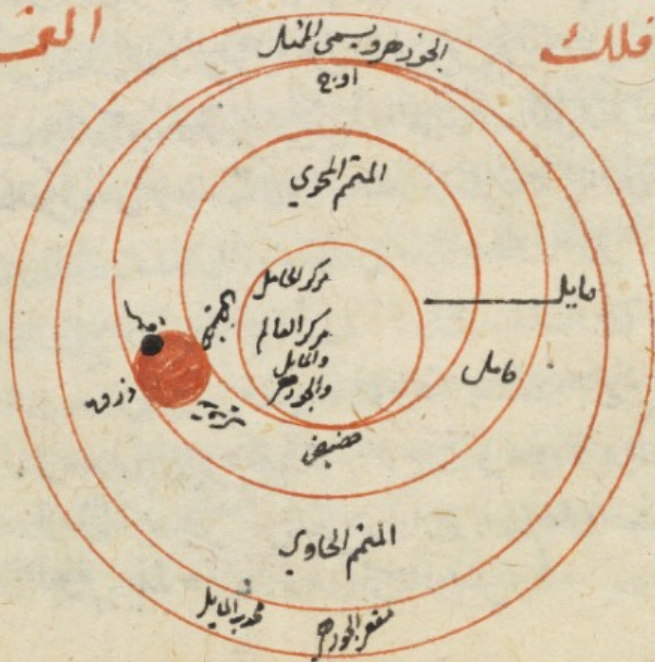 فلك
الجوزهر ويسمى الممثل
اوج
المتمم المحوي
مركز الحامل
مايل
مركز العالم
والمايل
والجوزهر
حامل
ذروة
حضيض
المتمم الحاوي
محدب المايل
مقعر الجوزهر